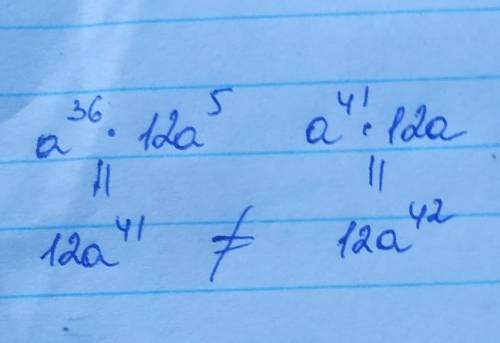 a³⁶ · 12a⁵ a⁴¹ · 12a
|| ||
12a⁴¹ ≠ 12a⁴²